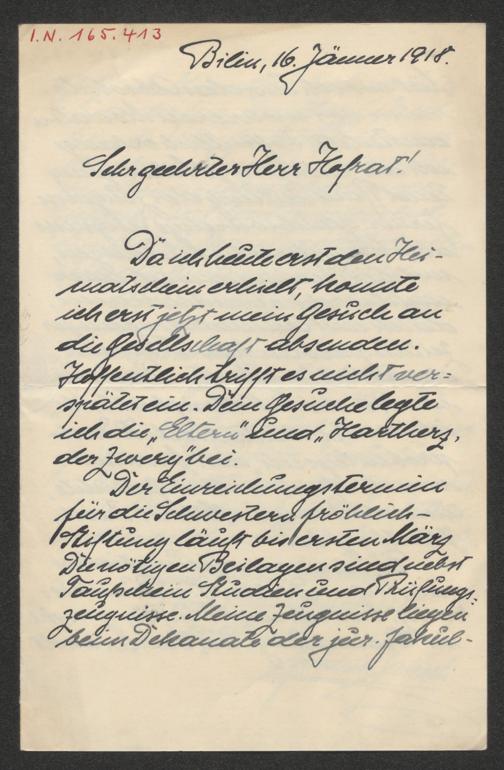 I.N. 165.413
Bilin, 16. Jänner 1918.
Sehr geehrter Herr Hofrat!
Da ich heute erst den Hei-
matschein erhielt, konnte
ich erst jetzt mein Gesuch an
die Gesellschaft absenden.
Hoffentlich trifft es nicht ver=
spätet ein. Dem Gesuche legte
ich die „Eltern“ und „Hartherz,
der Zwerg“ bei.
Der Einreichungstermin
für die Schwestern Fröhlich-
Stiftung läuft bis ersten März
Die nötigen Beilagen sind nebst
Taufschein Studien und Prüfungs=
zeugnisse. Meine Zeugnisse liegen
beim Dekanate der jur. Fakul-